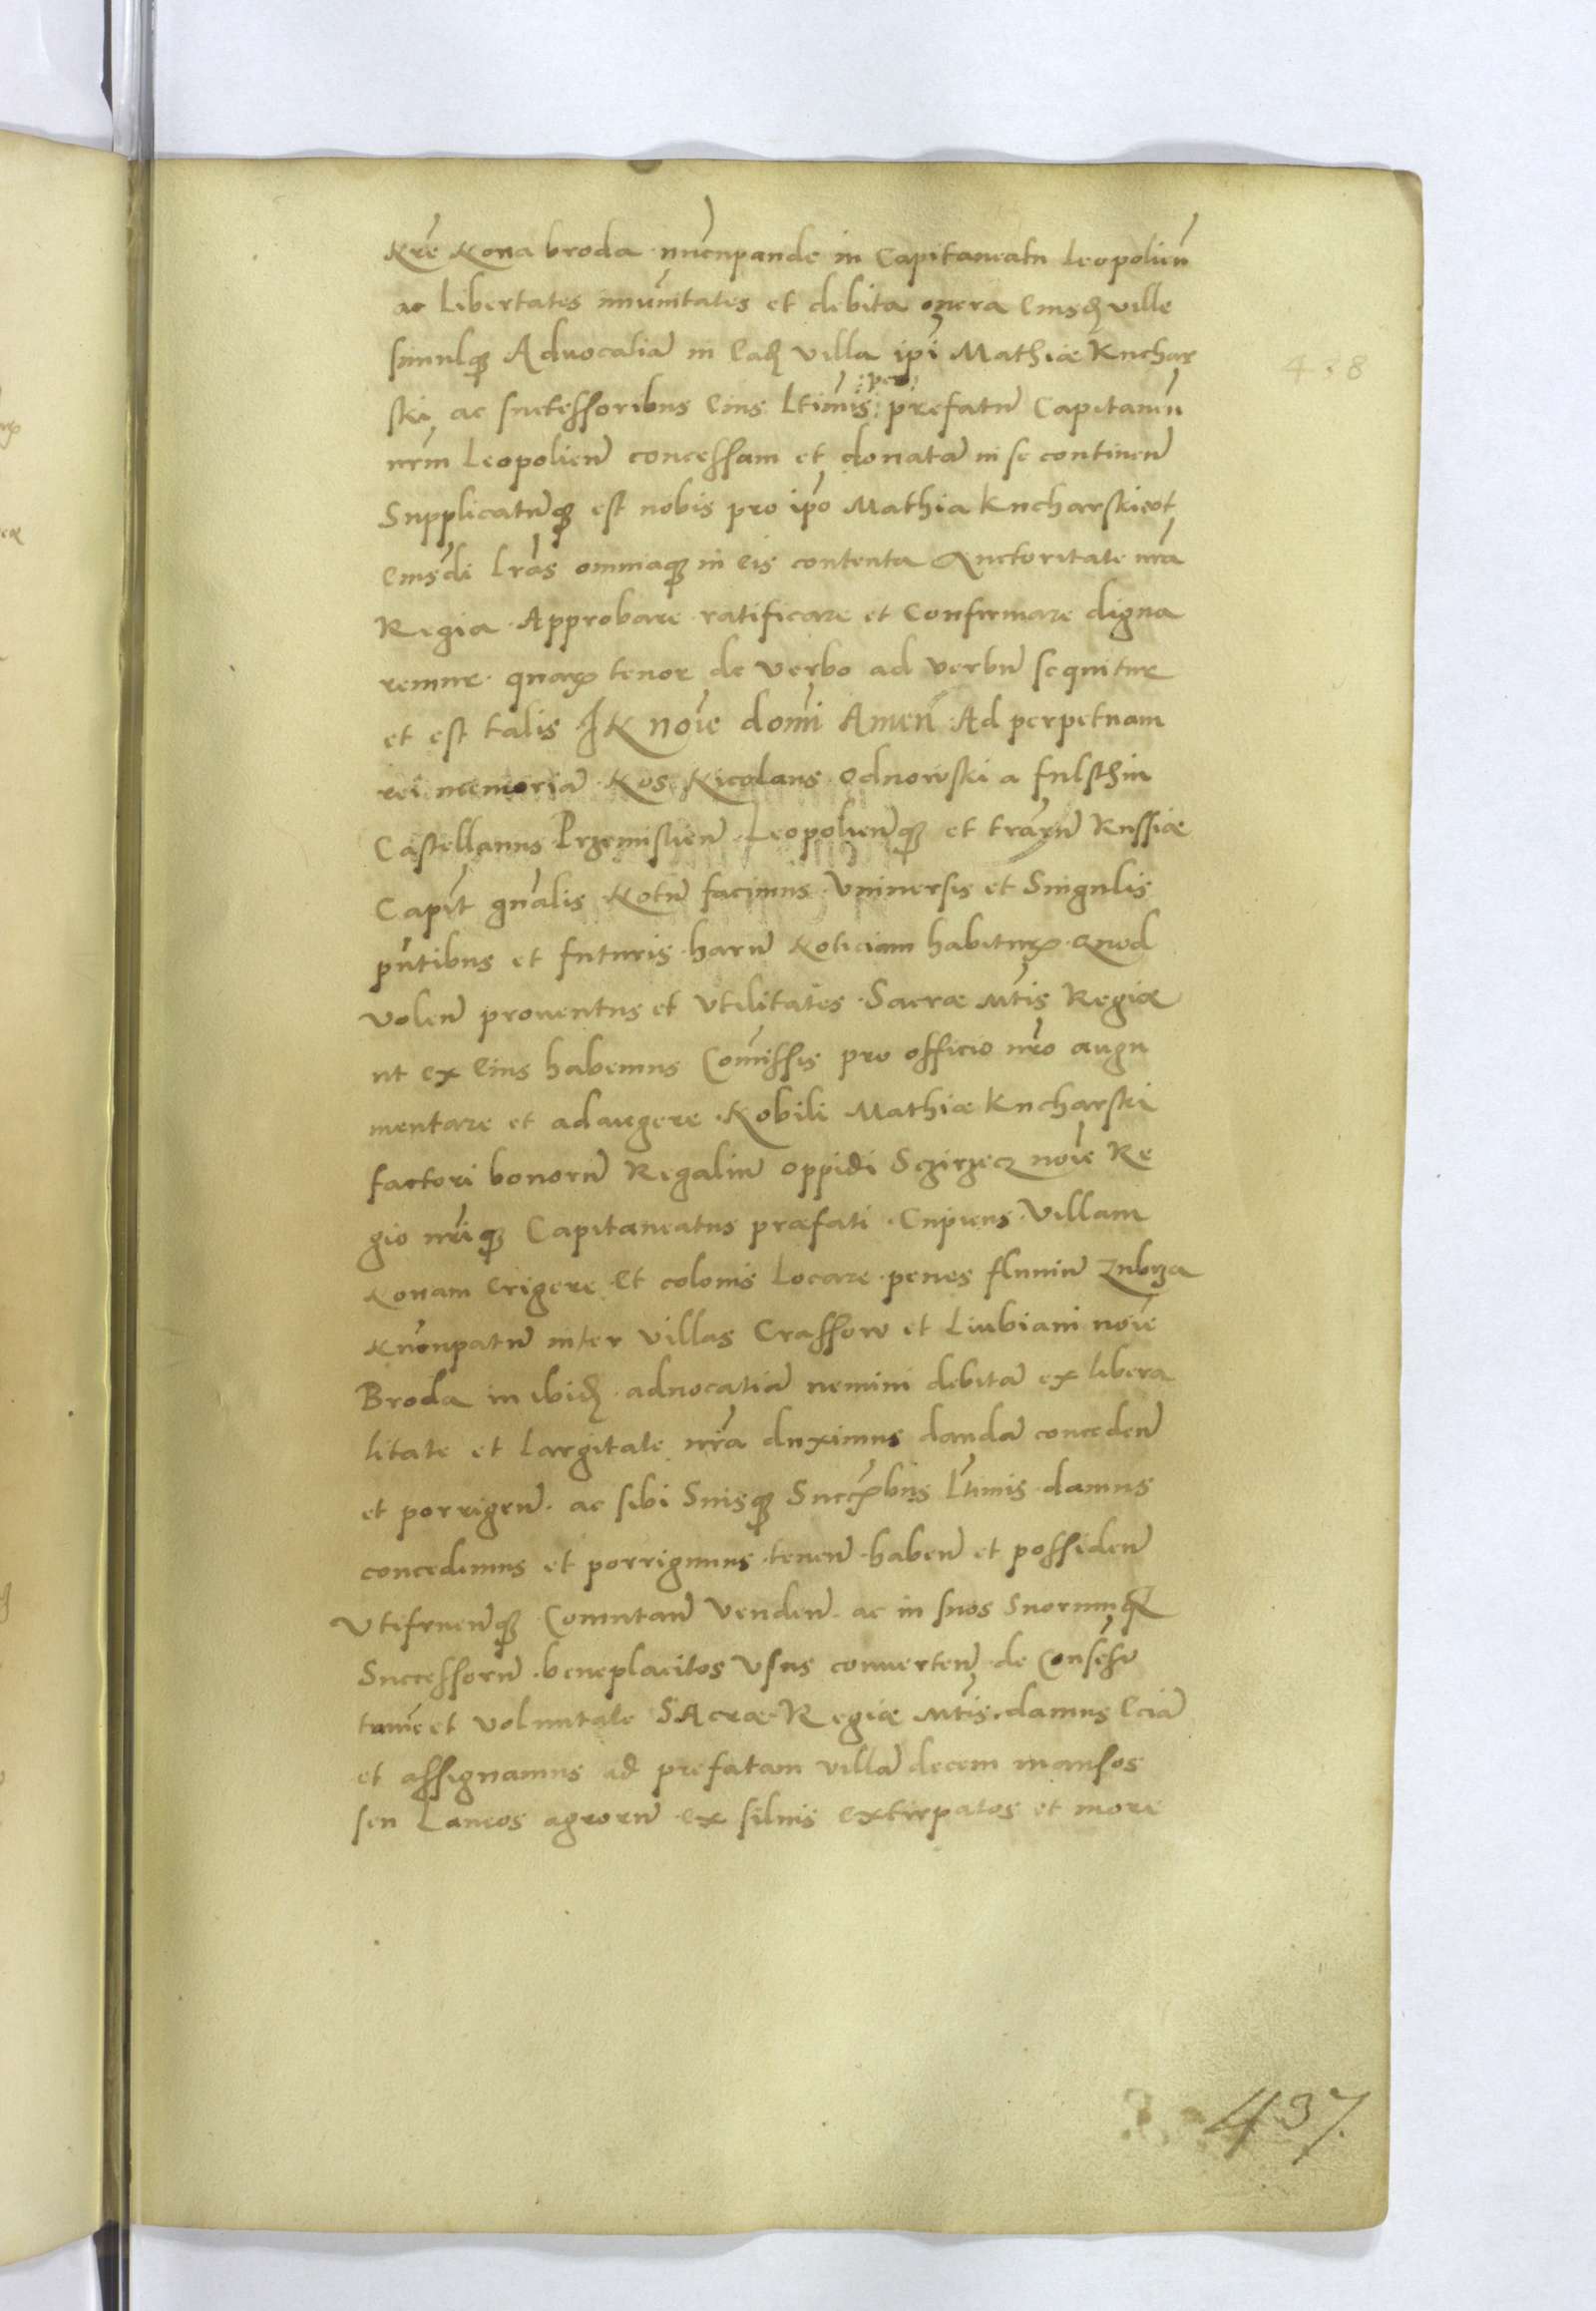 Nre Nova broda nūcupande in Capitaneatu Leopolien̄
ac libertates imūnitates et debita onera eiusdꝫ ville
simulqꝫ Advocatiā in eadꝫ villa ip̄i Mathiæ Kuchar
438
ski ac successoribus eius l̄timis :per: prefatū Capitaneū
nr̄m Leopolien̄ concessam et donatā in se continen̄
Supplicatūqꝫ est nobis pro ip̄o Mathia Kucharski vt
eiusd̄i lr̄as omniaqꝫ in eis contenta Auctoritate nr̄a
Regia Approbare ratificare et Confirmare digna
remur. quaꝝ tenor de verbo ad verbū sequitur
et est talis IN noīe domī Amen̄ Ad perpetuam
rei memoriā Nos Nicolaus Odnowski a fulsthin
Castellanus Przemislien̄ Leopolien̄qꝫ et trārū Russiæ
Capit̄ gn̄alis Notū facimus Vniversis et Singulis
pn̄tibus et futuris harū Noticiam habituꝝ Quod
volen̄ proventus et vtilitates Sacræ Mt̄is Regiæ
ut ex eius habemus Com̄issis pro officio nr̄o augu
mentare et adaugere Nobili Mathiæ Kucharski
factori bonorū Regaliū oppidi Sczirzecz noīe Re
gio nr̄iqꝫ Capitaneatus præfati Cupiens Villam
Novam erigere et colonis locare penes fluviū Zubrza
Nūcupatū inter villas Crassow et Liubiani noīe
Broda in ibidꝫ advocatiā nemini debitā ex libera
litate et largitate nr̄a duximus dandā conceden̄
et porrigen̄ ac sibi Suisqꝫ Succr̄ibus l̄timis damus
concedimus et porrigimus tenen̄ haben̄ et possiden̄
Vtifruen̄qꝫ Comutan̄ Venden̄ ac in suos Suorumqꝫ
Successorū beneplacitos Vsus converten̄ de Consēsu
tamē et voluntate SAcræ Regiæ Mt̄is damus eciā
et assignamus ad prefatam villā decem mansos
seu Laneos agrorū ex silvis extirpatos et more
437.